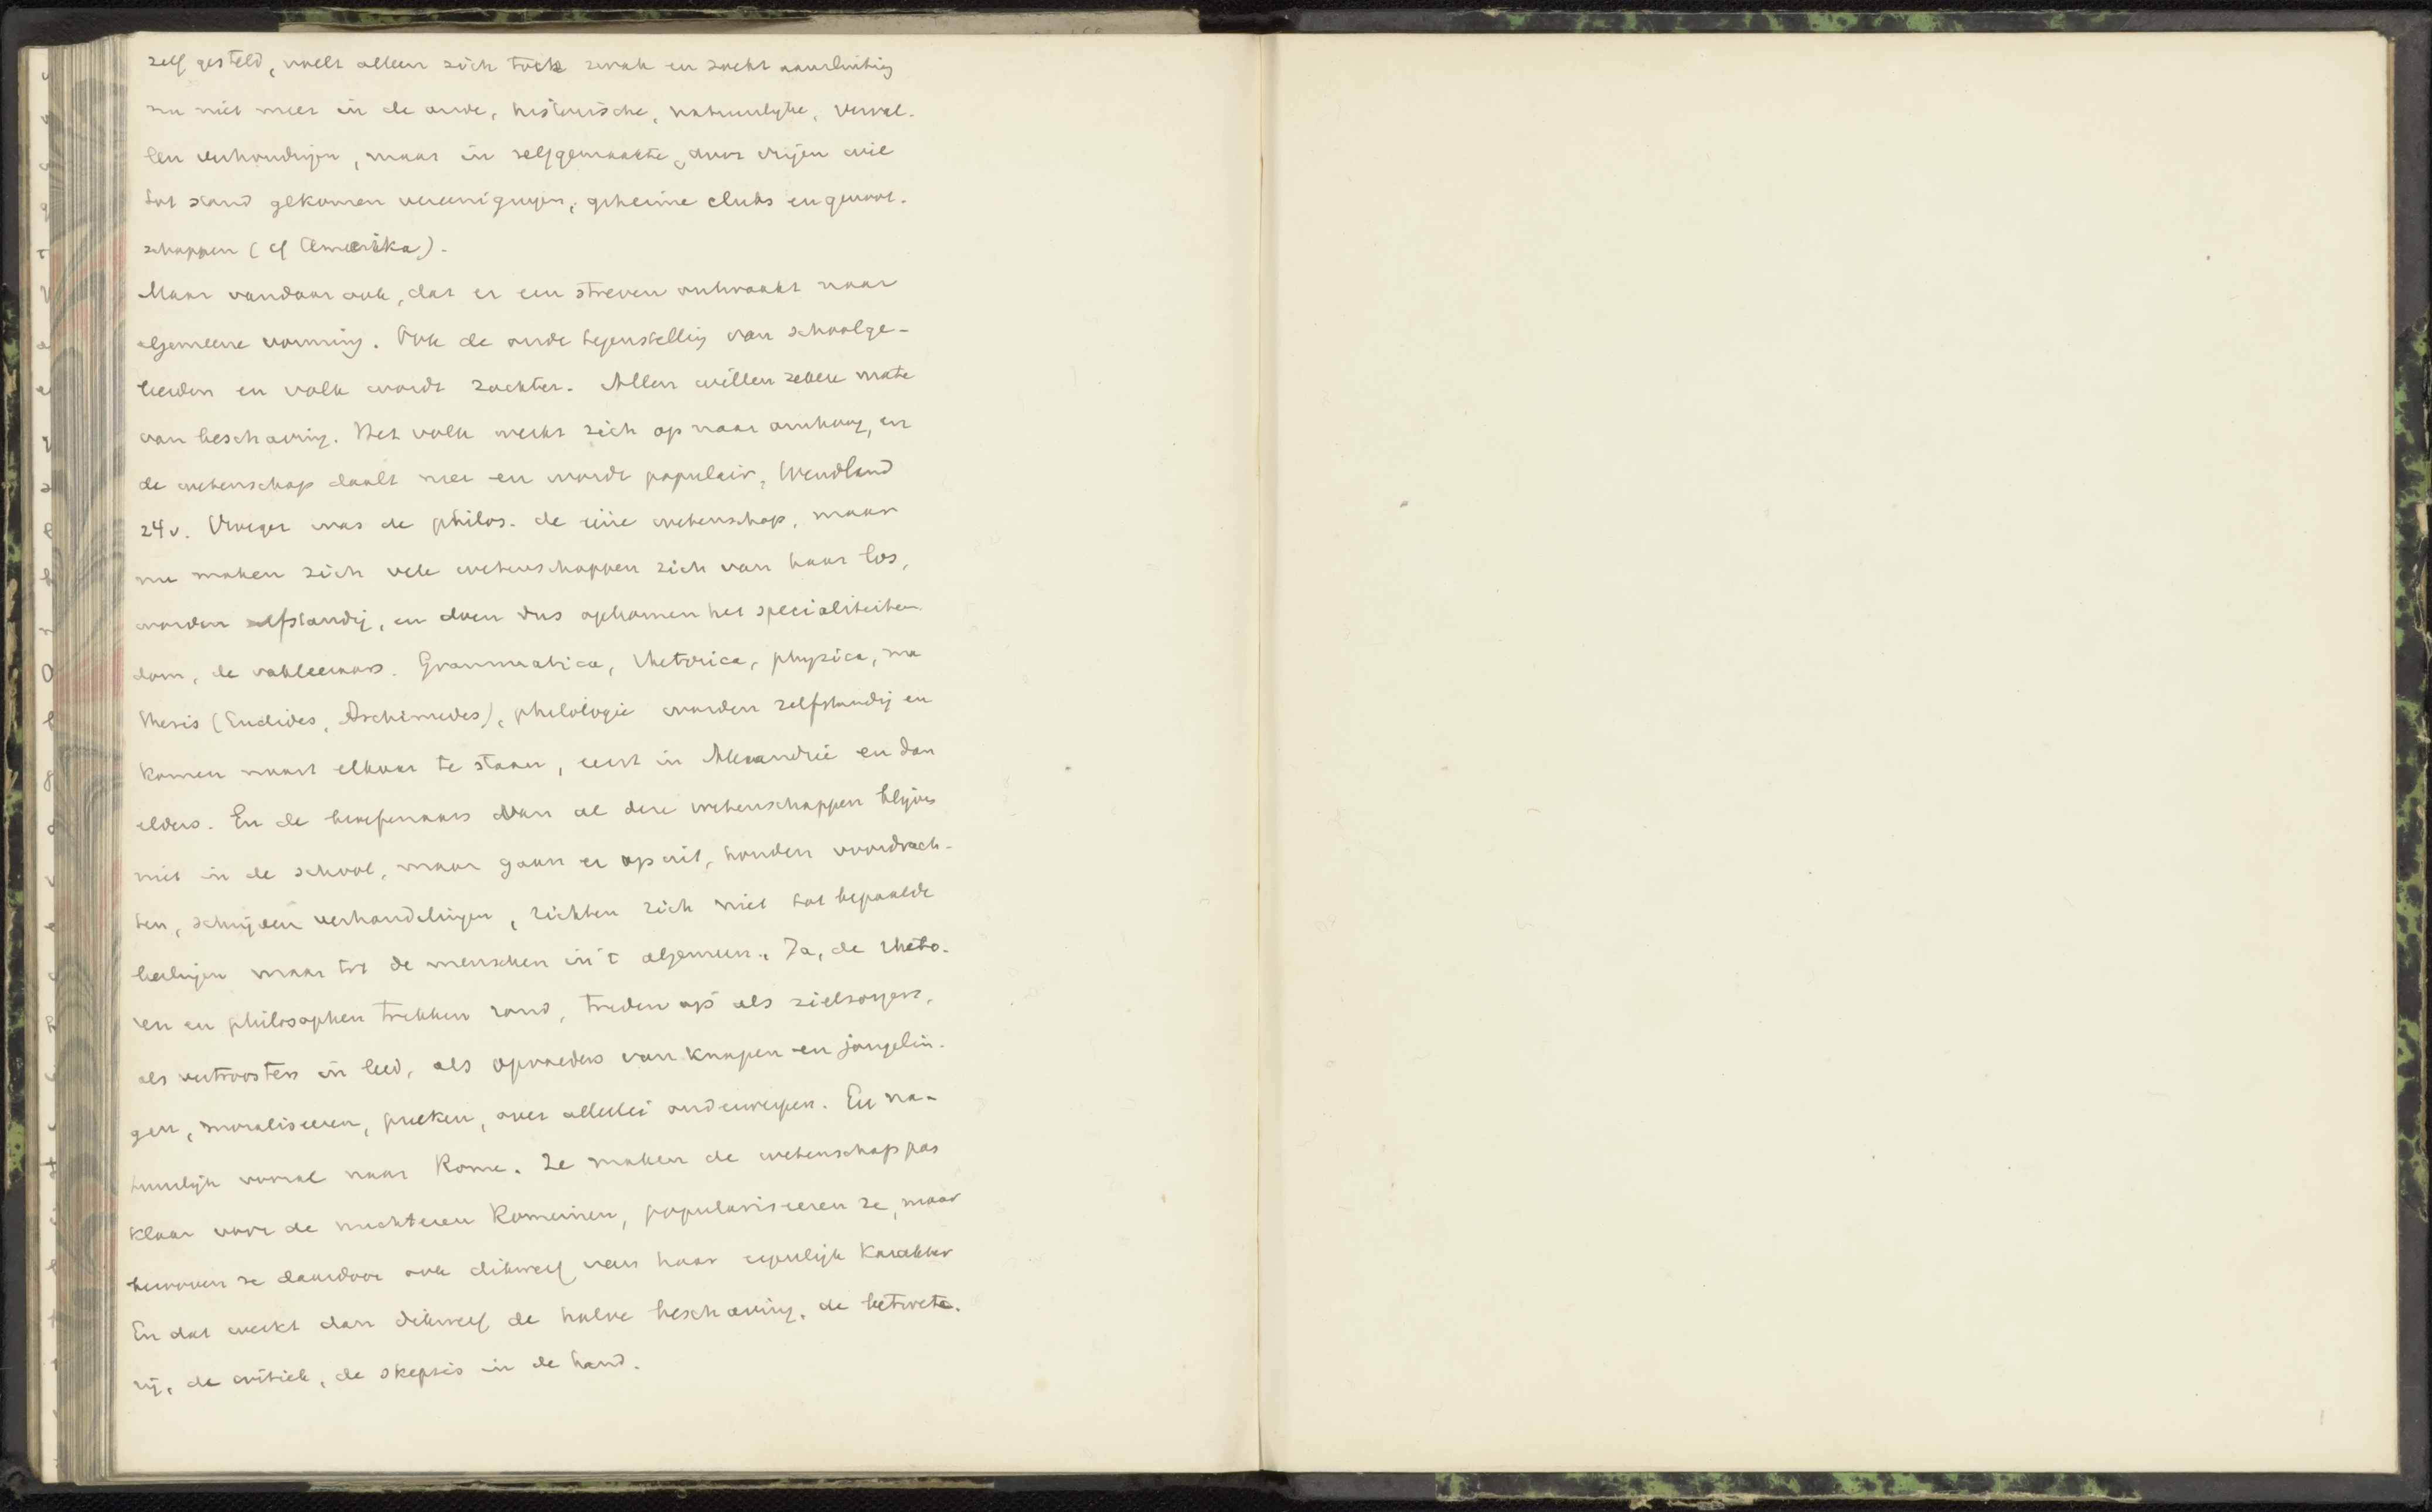 zelf gesteld, voelt alleen zich toch zwak en zoekt aansluiting
nu niet meer in de oude, historische, natuurlyke, verval-
len verhoudingen, maar in zelfgemaakte, door vrijen wil
tot stand gekomen vereenigingen, geheime clubs en genoot-
schappen (cf Amerika).
Maar vandaar ook, dat er een streven ontwaakt naar
algemeene vorming. Ook de oude tegenstelling van schoolge-
leerden en volk wordt zachter. Allen willen zekere mate
van beschaving. Het volk werkt zich op naar omhoog, en
de wetenschap daalt neer en wordt populair, Wendland
24v. Vroeger was de philos. de eéne wetenschap, maar
nu maken zich vele wetenschappen zich van haar los,
worden zelfstandig, en doen dus opkomen het specialiteiten
dom, de vakleeraars. Grammatica, rhetorica, physica, ma
thesis (Euclides, Archimedes), philologie worden zelfstandig en
komen naast elkaar te staan, eerst in Alexandrië en dan
elders. En de beoefenaars van al deze wetenschappen blijven
niet in de school, maar gaan er op uit, houden voordrach-
ten, schrijven verhandelingen, richten zich niet tot bepaalde
leerlingen maar tot de menschen in 't algemeen. Ja, de rheto-
ren en philosophen trekken rond, treden op als zielzorgers,
als vertroosters in leed, als opvoeders van knapen en jongelin-
gen, moraliseeren, preeken, over allerlei onderwerpen. En na-
tuurlijk vooral naar Rome. Ze maken de wetenschap pas
klaar voor de nuchteren Romeinen, populariseeren ze, maar
berooven ze daardoor ook dikwerf van haar eigenlijk karakter
En dat werkt dan dikwerf de halve beschaving, de betwete-
rij, de critiek, de skepsis in de hand.